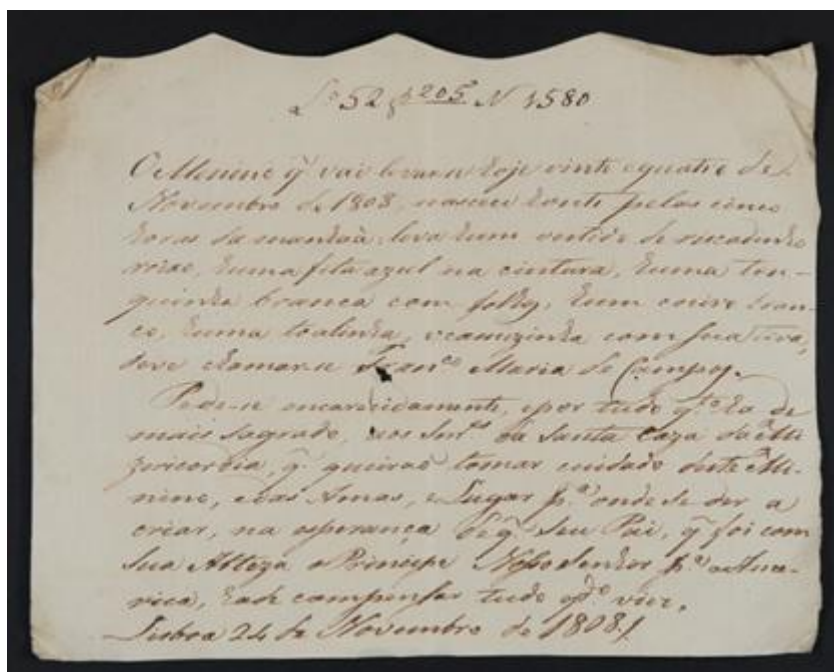 Lo 52 f 205 N 1580
O Menino q̃ vai levar-se hoje vinte e quatro de
Novembro de 1808, nasceo honte pelas cinco
horas da manhaã, leva hum vestido de riscadinho
roixo, huma fita azul na cintura, huma tou-
quinha branca com folhos, hum coeiro bran-
co, huma toalinha, e camizinha com sua
deve chamar-se Franco Maria de Campos.
Pede-se encarecidamente, e por tudo qto ha de
mais sagrado, aos Snres da Santa Caza da Mi-
zericordia, q̃ queirão tomar cuidado deste Me-
nino, e das Amas, e Lugar pa onde se der a
crear, na esperança de q̃ seu Pai, q̃ foi com
Sua Alteza o Principe Nosso Senhor pa a Ame-
rica, hade compensar tudo qdo vier.
Lisboa 24 de Novembro de 1808